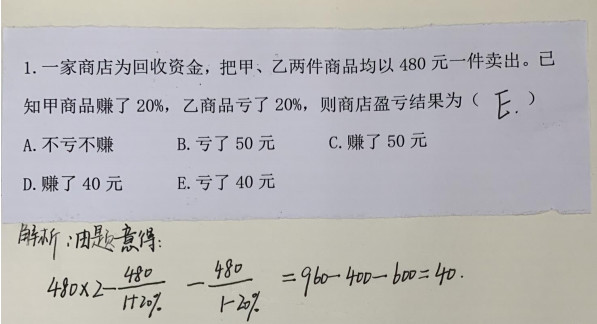 1.一家商店为回收资金，把甲、乙两件商品均以 480 元一件卖出。已
知甲商品赚了 20%，乙商品亏了 20%，则商店盈亏结果为（ E. ）
A.不亏不赚 B.亏了 50 元 C.赚了 50 元
D.赚了 40 元 E.亏了 40 元
解析：由题意得：
480×2-480/(1+20%) - 480/(1-20%) =960-400-600=40.